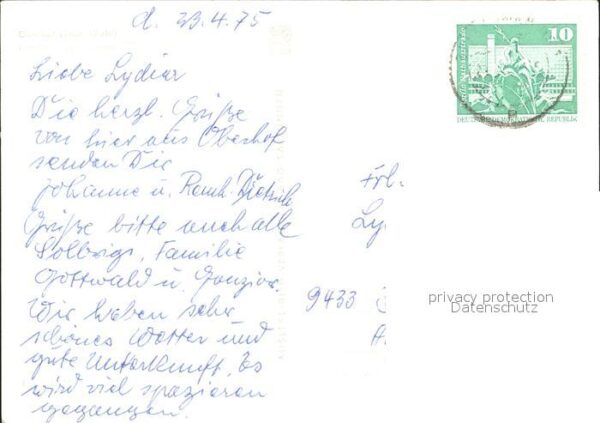 d. 23.4.75
Liebe Lydia
Die herzl. Grüße
von hier aus Oberhof
senden Die
Johanne u. Dietrich
Grüße bitte auch alle
Familie
Gottwald u.
Wir haben sehr
schönes Wetter und
gute Unterkunft. Es
wird viel spazieren
gegangen.
10
DEUTSCHE DEMOKRATISCHE REPUBLIK
Frl.
Ly
9433
privacy protection
Datenschutz